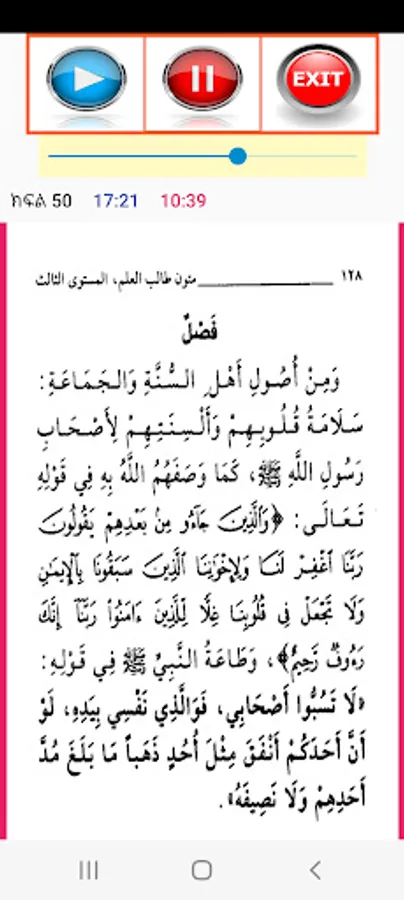 EXIT
ክፍል 50 17:21 10:39
١٢٨ ــــــــــــــــ متون طالب العلم، المستوى الثالث
فَصْلٌ
وَمِنْ أُصُولِ أَهْلِ السُّنَّةِ وَالْجَمَاعَةِ:
سَلَامَةُ قُلُوبِهِمْ وَأَلْسِنَتِهِمْ لِأَصْحَابِ
رَسُولِ اللَّهِ ﷺ، كَمَا وَصَفَهُمُ اللَّهُ بِهِ فِي قَوْلِهِ
تَعَالَى: ﴿وَالَّذِينَ جَاءُو مِنْ بَعْدِهِمْ يَقُولُونَ
رَبَّنَا اغْفِرْ لَنَا وَلِإِخْوَانِنَا الَّذِينَ سَبَقُونَا بِالْإِيمَانِ
وَلَا تَجْعَلْ فِي قُلُوبِنَا غِلًّا لِلَّذِينَ ءَامَنُوا رَبَّنَا إِنَّكَ
رَءُوفٌ رَحِيمٌ﴾، وَطَاعَةُ النَّبِيِّ ﷺ فِي قَوْلِهِ:
«لَا تَسُبُّوا أَصْحَابِي، فَوَالَّذِي نَفْسِي بِيَدِهِ، لَوْ
أَنَّ أَحَدَكُمْ أَنْفَقَ مِثْلَ أُحُدٍ ذَهَباً مَا بَلَغَ مُدَّ
أَحَدِهِمْ وَلَا نَصِيفَهُ».